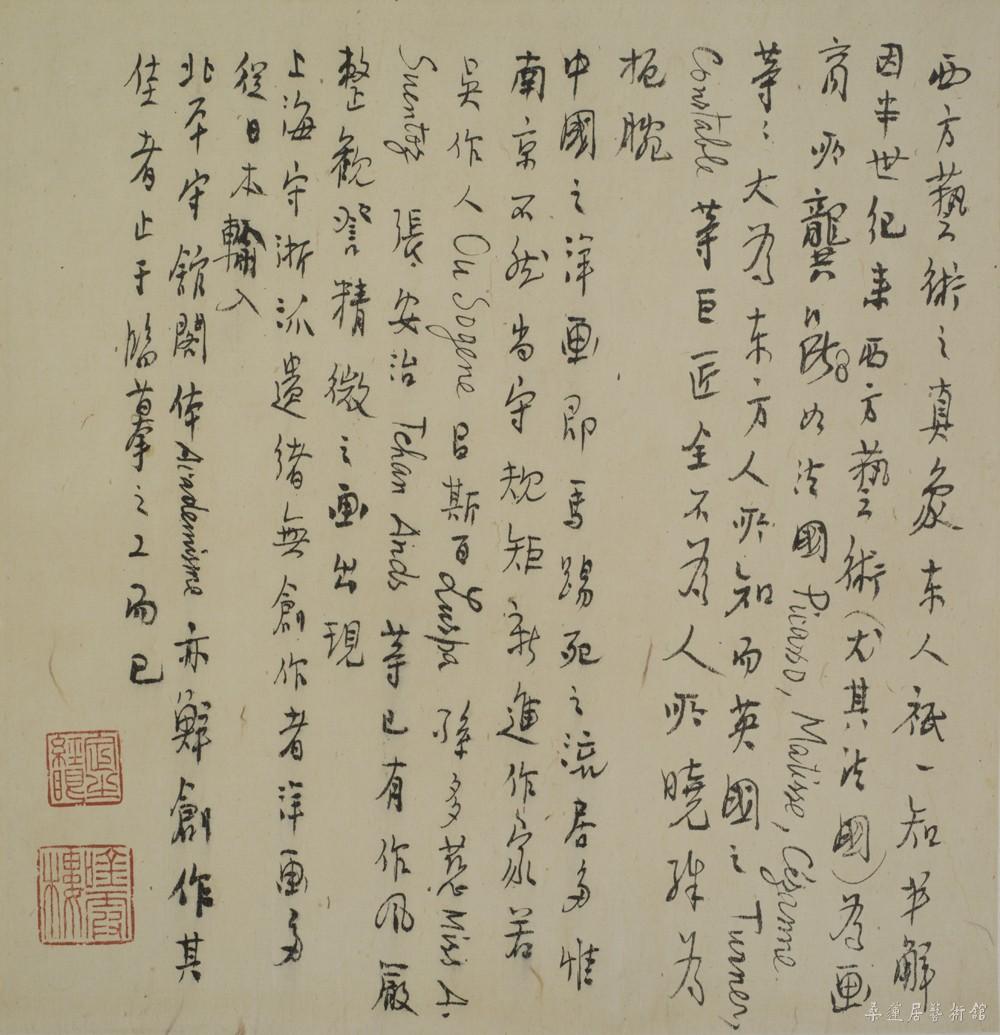 西方藝術之真象东人祇一知半解
因半世纪来西方藝術(尤其法國)為画
商所壟斷 如法國 Picasso, Matisse, Cézanne
等等大為东方人所知而英國之 Turner,
Constable 等巨匠全不為人所曉殊為
扼腕
中國之洋画即马踢死之流居多惟
南京不然尚守规矩新進作家若
吳作人 Ou Sogene 吕斯百 Luspa 孫多慈 Miss A.
Suentoze 張安治 Tchan Ands 等已有作风嚴
整觀詧精微之画出現
上海守浙派遺绪無創作者洋画多
從日本輸入
北平守館閣体 Academisme 亦鮮創作其
佳者止于臨摹之工而已
棲霞樓
桑蓮居藝術館